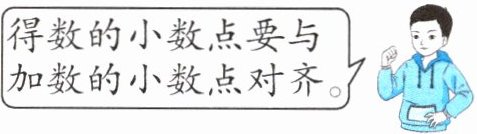 得数的小数点要与
加数的小数点对齐。